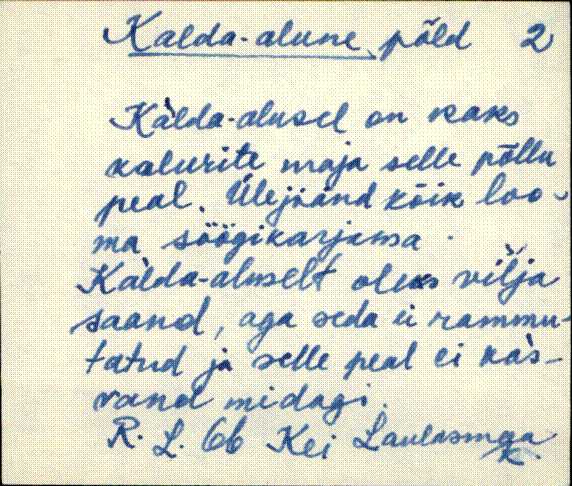 Kalda-alune põld 2
Kàlda-alusel on kaks
kalurite maja selle põllu
peal. Ülejäänd kõik loo-
ma söögikarjama.
Kàlda-aluselt oleks vilja
saand, aga seda ei rammu-
tatud ja selle peal ei kàs-
vand midagi.
R. L. 66 Kei Laulasmaa
k